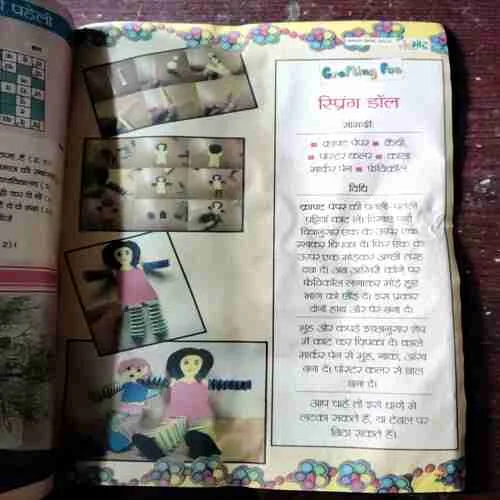 पहेली
Crafting Fun
स्प्रिंग डॉल
सामग्री:
क्राफ्ट पेपर कैंची,
पोस्टर कलर काला
मार्कर पेन फेविकॉल
विधि
क्राफ्ट पेपर की पतली-पतली
पट्टियां काट लें। दिखाए गए
चित्रानुसार एक के ऊपर एक
रखकर चिपका दें। फिर एक के
ऊपर एक मोड़कर अच्छी तरह
दबा दें। अब आखिरी कोने पर
फेविकॉल लगाकर मोड़े हुए
भाग को छोड़ दें। इस प्रकार
दोनों हाथ और पैर बना दें।
मुंह और कपड़े इच्छानुसार शेप
में काट कर चिपका दें। काले
मार्कर पेन से मुंह, नाक, आंख
बना दें। पोस्टर कलर से बाल
बना दें।
आप चाहें तो इसे धागे से
लटका सकते हैं, या टेबल पर
बिठा सकते हैं।